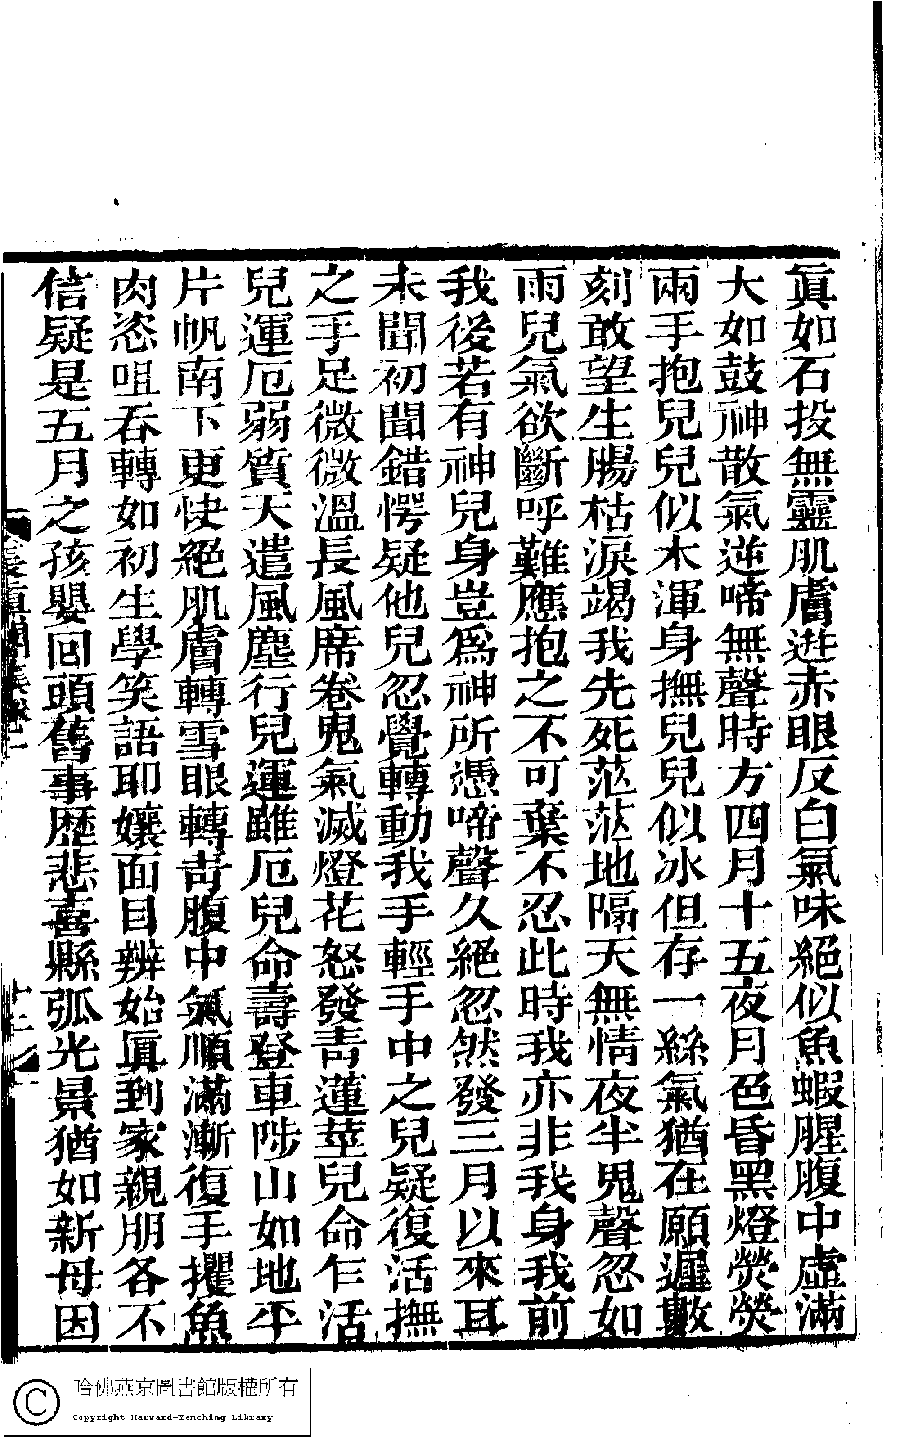 眞如石投無靈肌膚逬赤眼反白氣味絕似魚蝦腥腹中虛滿
大如鼓神散氣逆啼無聲時方四月十五夜月色昏黑燈熒熒
兩手抱兒兒似木渾身撫兒兒似冰但存一絲氣猶在願遲數
刻敢望生腸枯淚竭我先死茫茫地隔天無情夜半鬼聲忽如
雨兒氣欲斷呼難應抱之不可棄不忍此時我亦非我身我前
我後若有神兒身豈爲神所憑啼聲久絕忽然發三月以來耳
未聞初聞錯愕疑他兒忽覺轉動我手輕手中之兒疑復活撫
之手足微微溫長風席卷鬼氣滅燈花怒發靑蓮莖兒命乍活
兒運厄弱質天遣風塵行兒運雖厄兒命壽登車陟山如地平
片帆南下更快絕肌膚轉雪眼轉靑腹中氣順滿漸復手攫魚
肉恣咀吞轉如初生學笑語耶孃面目辨始眞到家親朋各不
信疑是五月之孩嬰回頭舊事歷悲喜縣弧光景猶如新母因
哈佛燕京圖書館版權所有
Copyright Harvard-Yenching Library